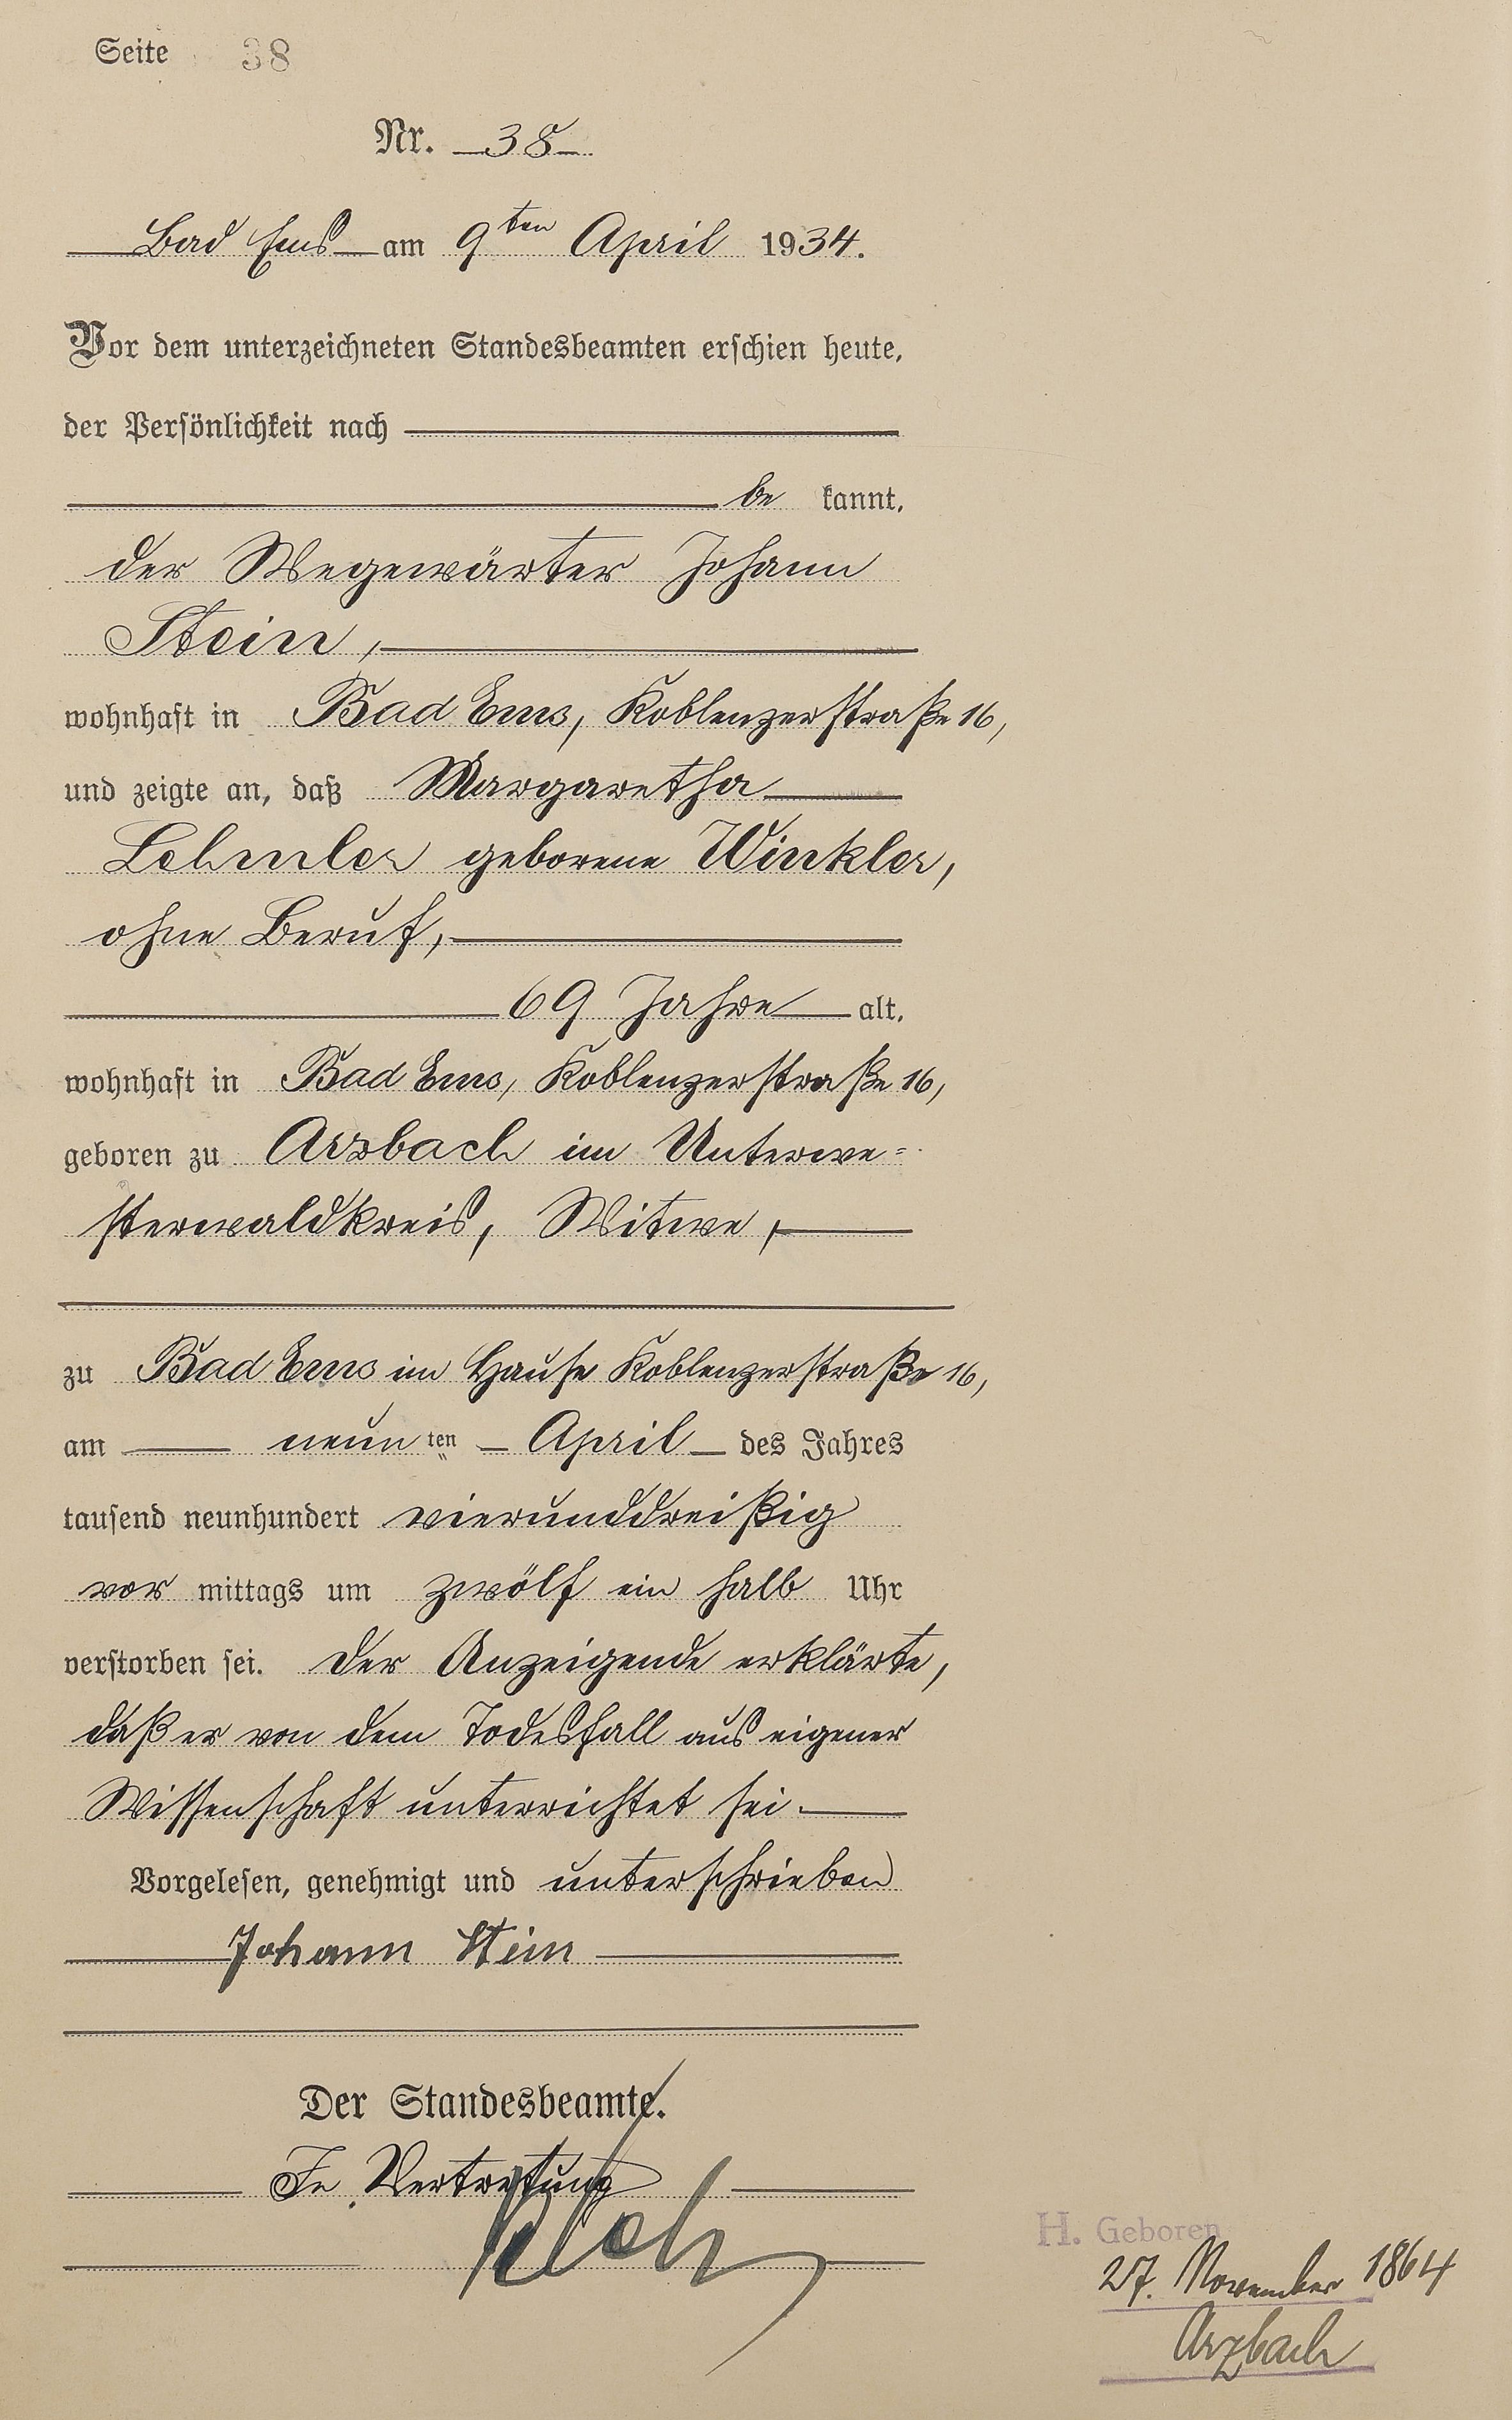 Seite 38
Nr. 38
Bad Ems am 9ten April 1934.
Vor dem unterzeichneten Standesbeamten erschien heute,
der Persönlichkeit nach
be kannt,
der Wegewärter Johann
Stein,
wohnhaft in Bad Ems, Koblenzerstraße 16,
und zeigte an, daß Margaretha
Lehmler geborene Winkler,
ohne Beruf,
69 Jahre alt,
wohnhaft in Bad Ems, Koblenzerstraße 16,
geboren zu Arzbach im Unterwe=
sterwaldkreis, Witwe,
zu Bad Ems im Hause Koblenzerstraße 16,
am neun ten April des Jahres
tausend neunhundert vierunddreißig
vor mittags um zwölf ein halb Uhr
verstorben sei. Der Anzeigende erklärte,
daß er von dem Todesfall aus eigener
Wissenschaft unterrichtet sei.
Vorgelesen, genehmigt und unterschrieben
Johann Stein
Der Standesbeamte.
In Vertretung
H. Geboren
27. November 1864
Arzbach